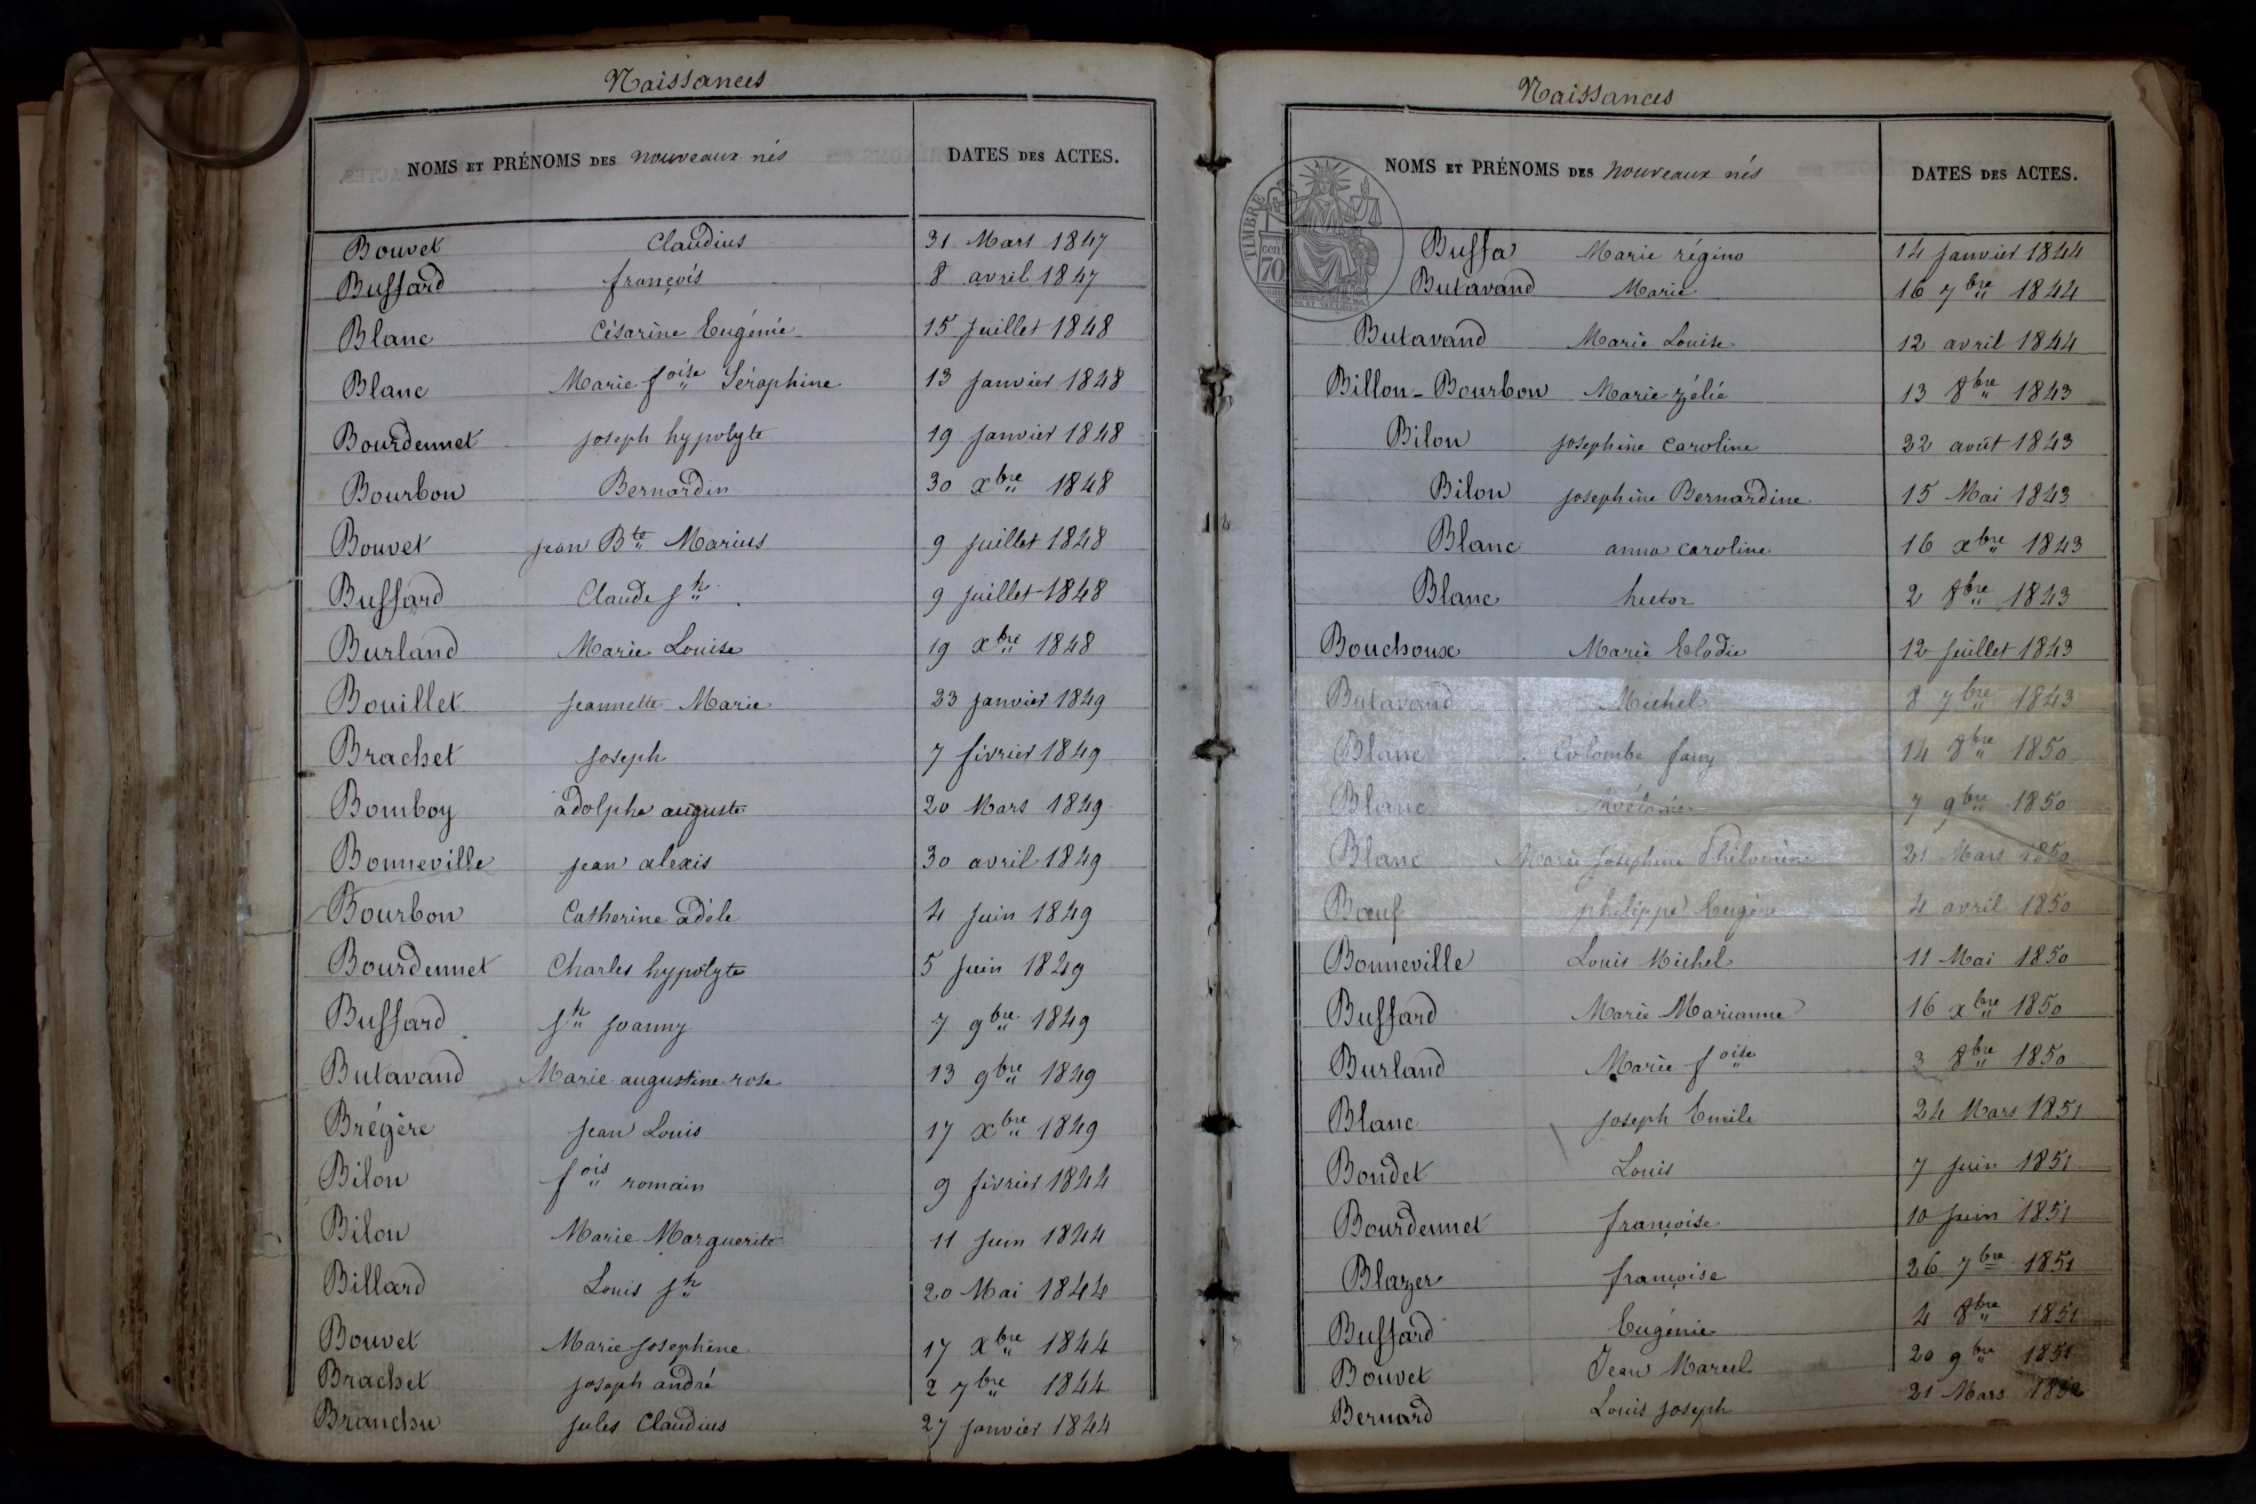 Naissances
NOMS ET PRÉNOMS DES nouveaux nés DATES DES ACTES.
Bouvet Claudius 31 Mars 1847
Buffard françois 8 avril 1847
Blanc Césarine Eugénie 15 juillet 1848
Blanc Marie foise Séraphine 13 janvier 1848
Bourdennet joseph hypolyte 19 janvier 1848
Bourbon Bernardin 30 xbre 1848
Bouvet jean Bte Marius 9 juillet 1848
Buffard Claude jh 9 juillet 1848
Burland Marie Louise 19 xbre 1848
Bouillet jeannette Marie 23 janvier 1849
Brachet joseph 7 février 1849
Bomboy adolphe auguste 20 Mars 1849
Bonneville jean alexis 30 avril 1849
Bourbon Catherine adèle 4 juin 1849
Bourdennet Charles hypolyte 5 juin 1849
Buffard jh joanny 7 9bre 1849
Butavand Marie augustine rose 13 9bre 1849
Brégère jean Louis 17 xbre 1849
Bilon fois romain 9 février 1844
Bilon Marie Marguerite 11 juin 1844
Billard Louis jh 20 Mai 1844
Bouvet Marie josephine 17 xbre 1844
Brachet joseph andré 2 7bre 1844
Branchu jules Claudius 27 janvier 1844
Naissances
NOMS ET PRÉNOMS DES nouveaux nés DATES DES ACTES.
TIMBRE
70
Buffa Marie régina 14 janvier 1844
Butavand Marie 16 7bre 1844
Butavand Marie Louise 12 avril 1844
Billon-Bourbon Marie zélie 13 8bre 1843
Bilon josephine caroline 22 août 1843
Bilon josephine Bernardine 15 Mai 1843
Blanc anna caroline 16 xbre 1843
Blanc hector 2 8bre 1843
Bouchoux Marie Elodie 12 juillet 1843
Butavand Michel 8 7bre 1843
Blanc Colombe fany 14 8bre 1850
Blanc 7 9bre 1850
Blanc Marie josephine Philomène 21 Mars 1850
Bœuf philippe Eugène 4 avril 1850
Bonneville Louis Michel 11 Mai 1850
Buffard Marie Marianne 16 xbre 1850
Burland Marie foise 3 8bre 1850
Blanc joseph Emile 24 Mars 1851
Bondet Louis 7 juin 1851
Bourdennet françoise 10 juin 1851
Blazer françoise 26 7bre 1851
Buffard Eugénie 4 8bre 1851
Bouvet Jean Marcel 20 9bre 1851
Bernard Louis joseph 21 Mars 1852